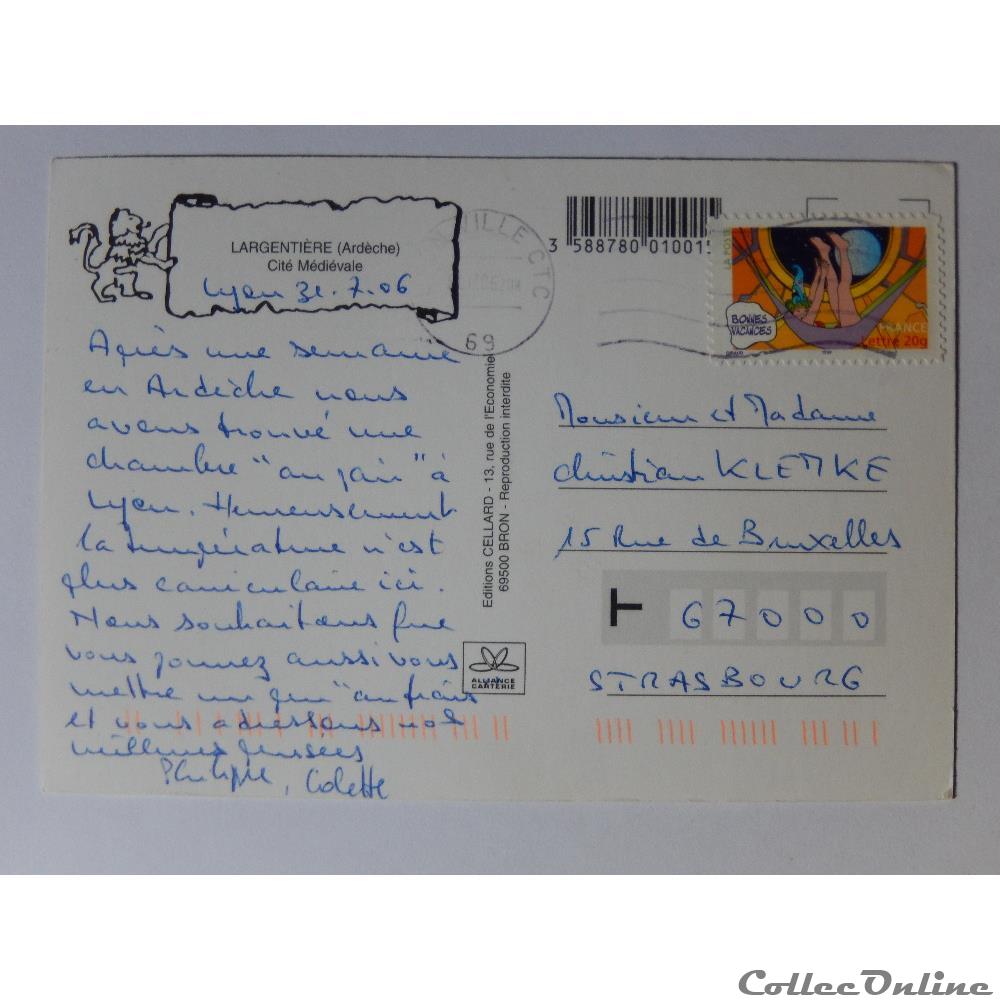 LARGENTIÈRE (Ardèche)
Cité Médiévale
Lyon 31.7.06
Après une semaine
en Ardèche nous
avons trouvé une
chambre "au frais" à
Lyon. Heureusement
la température n'est
plus caniculaire ici.
Nous souhaitons que
vous pourrez aussi vous
mettre un peu "au frais"
et vous adressons nos
meilleures pensées
Philippe, Colette
Editions CELLARD - 13, rue de l'Economie
69500 BRON - Reproduction interdite
ALLIANCE
CARTERIE
3 588780 01001
VILLE CTC
69
LA POSTE
BONNES
VACANCES
FRANCE
Lettre 20g
Monsieur et Madame
Christian KLEMKE
15 Rue de Bruxelles
67000
STRASBOURG
CollecOnline